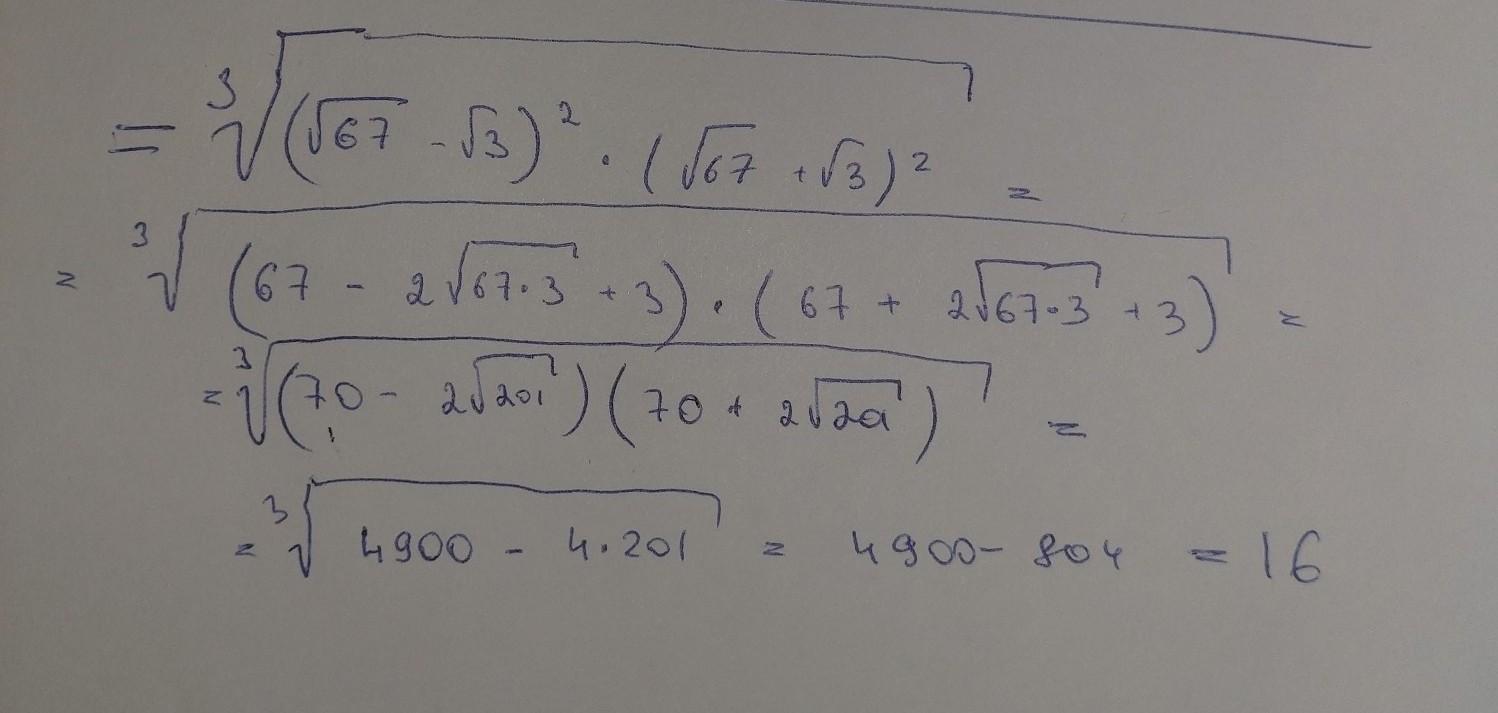 = ∛((√67 - √3)² · (√67 + √3)²) =
= ∛((67 - 2√(67·3) + 3) · (67 + 2√(67·3) + 3)) =
= ∛((70 - 2√201)(70 + 2√201)) =
= ∛(4900 - 4·201) = 4900 - 804 = 16